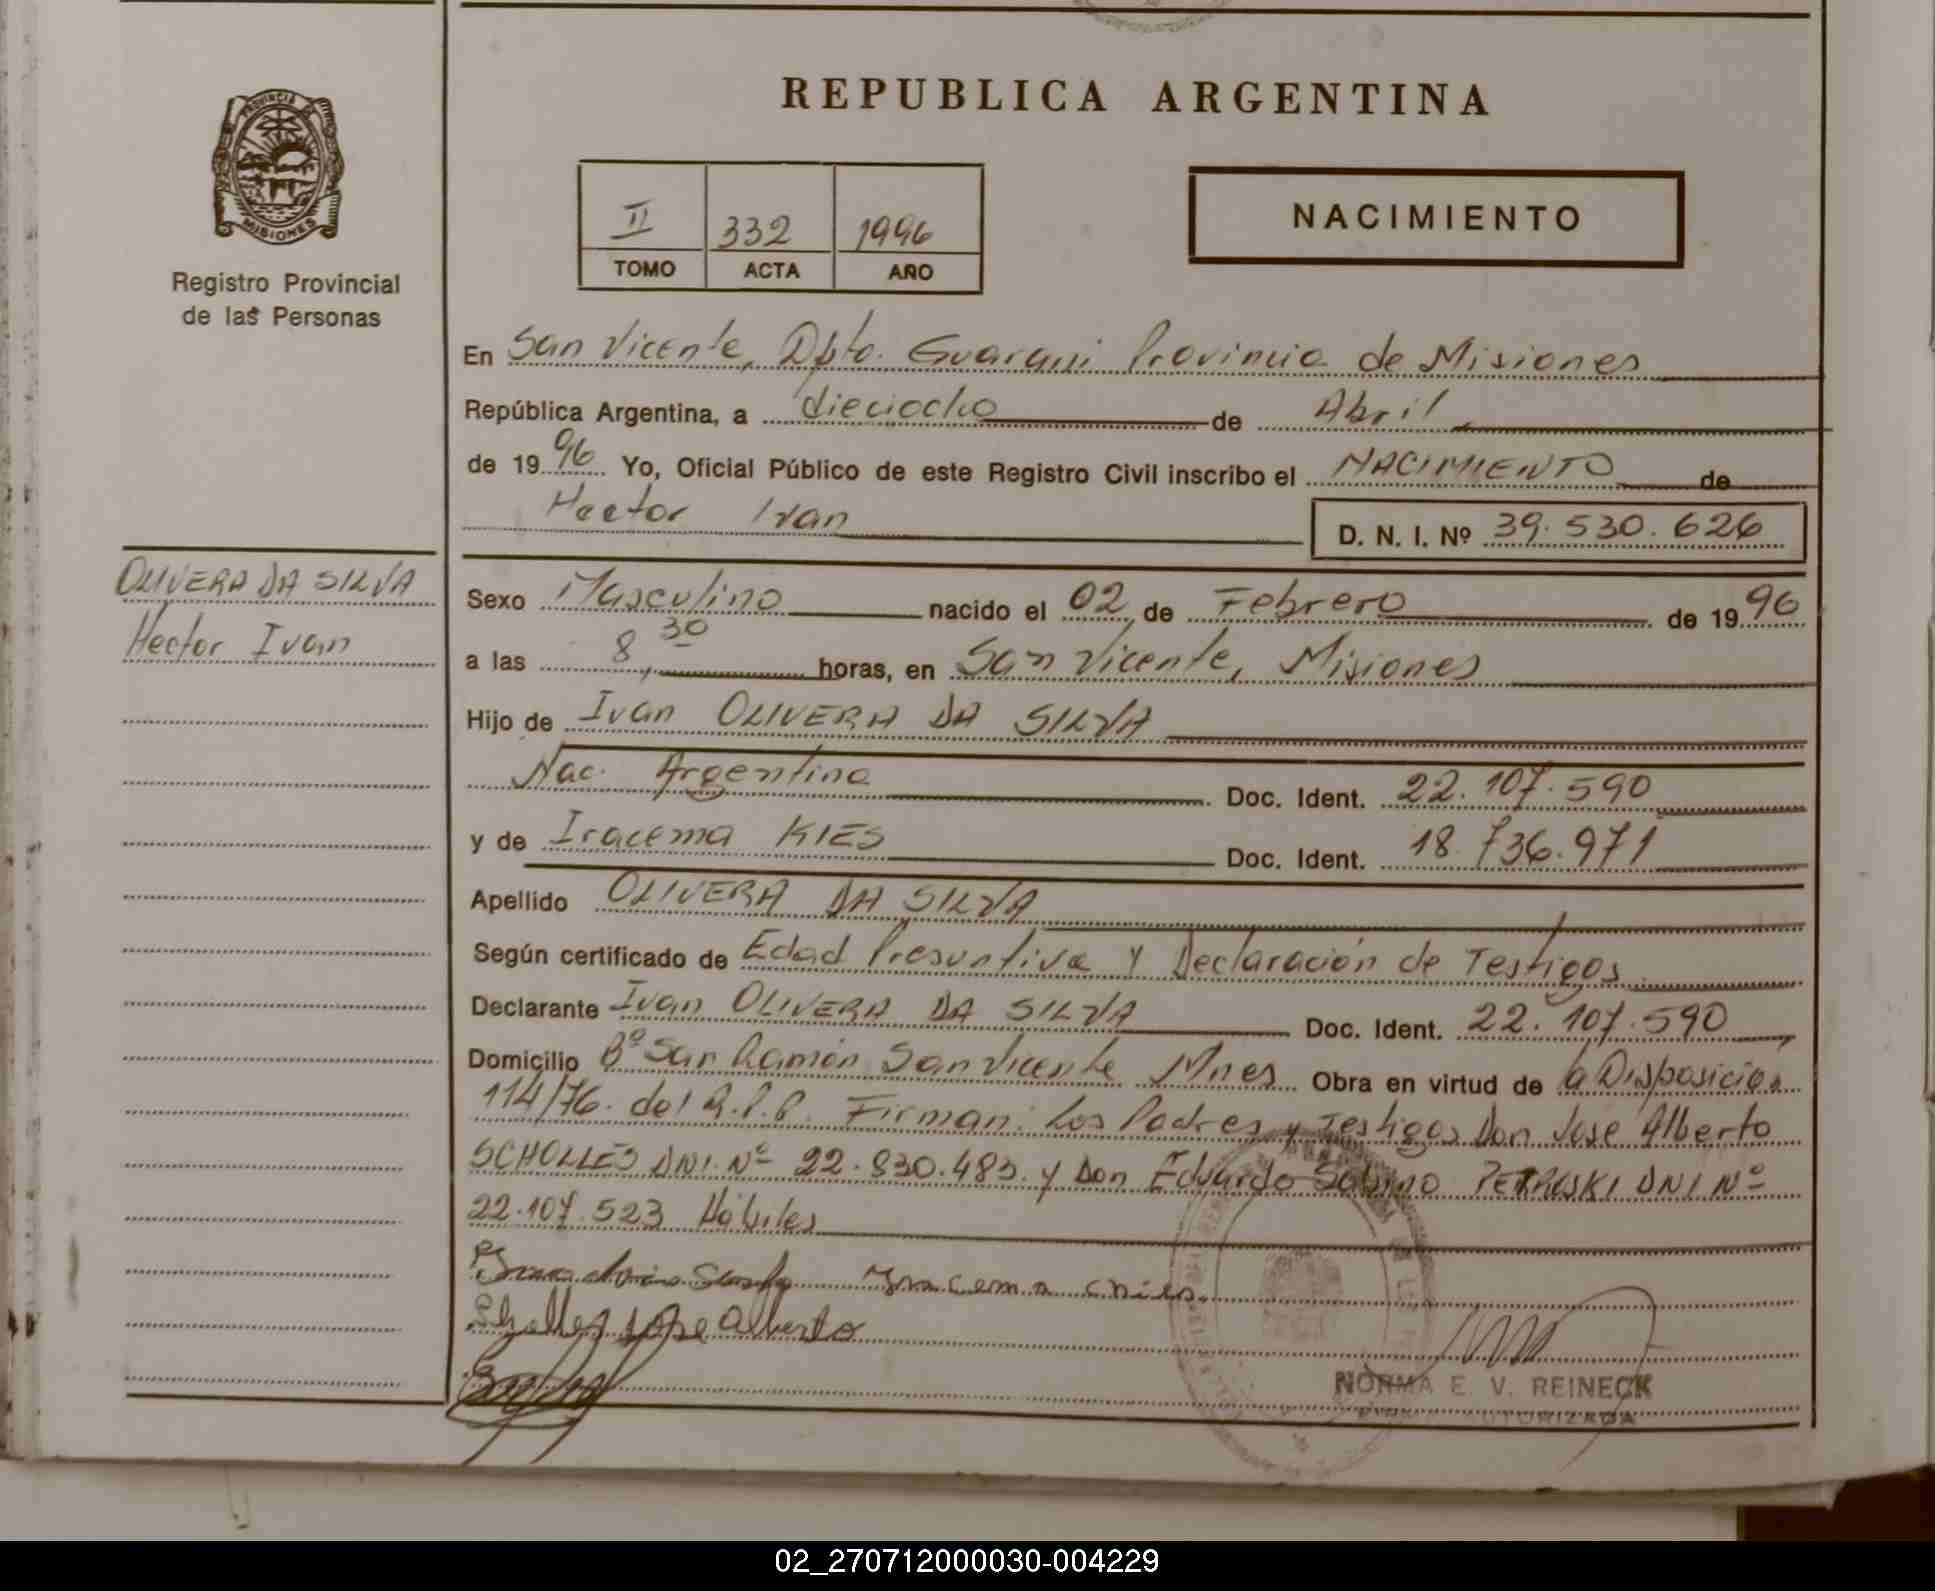 REPUBLICA ARGENTINA
PROVINCIA DE
MISIONES
Registro Provincial
de las Personas
II 332 1996
TOMO ACTA AÑO
NACIMIENTO
En San Vicente, Dpto. Guarani Provincia de Misiones
República Argentina, a dieciocho de Abril
de 1996 Yo, Oficial Público de este Registro Civil inscribo el NACIMIENTO de
Hector Ivan D. N. I. Nº 39.530.626
OLIVERA DA SILVA
Hector Ivan
Sexo Masculino nacido el 02 de Febrero de 1996
a las 8,30 horas, en San Vicente, Misiones
Hijo de Ivan OLIVERA DA SILVA
Nac. Argentina Doc. Ident. 22.107.590
y de Iracema KIES Doc. Ident. 18.736.971
Apellido OLIVERA DA SILVA
Según certificado de Edad Presuntiva y Declaración de Testigos
Declarante Ivan OLIVERA DA SILVA Doc. Ident. 22.107.590
Domicilio Bº San Ramón San Vicente Mnes Obra en virtud de la Disposición
114/76. del R.P.P. Firman: Los Padres y Testigos Don José Alberto
SCHOLLES DNI. Nº 22.830.483. y Don Eduardo Sabino PETROSKI DNI Nº
22.107.523 Hábiles
Iracema
José Alberto
NORMA E. V. REINECK
FIRMA AUTORIZADA
02_270712000030-004229